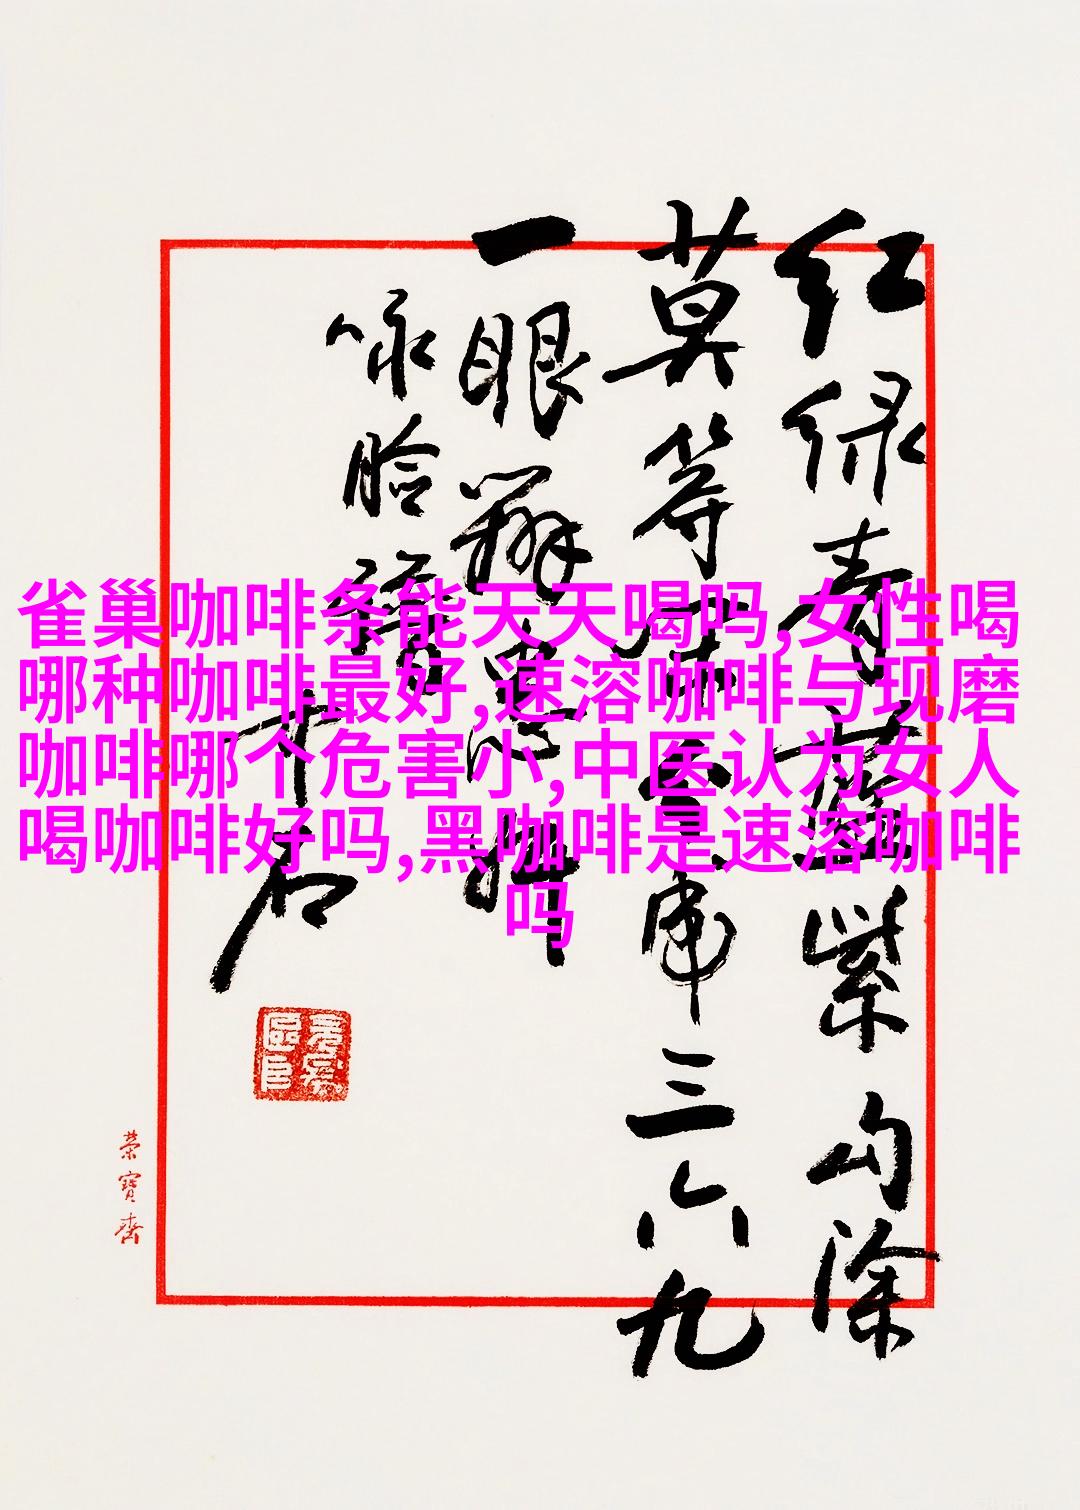 雀巢咖啡条能天天喝吗,女性喝
哪种咖啡最好,速溶咖啡与现磨
咖啡哪个危害小,中医认为女人
喝咖啡好吗,黑咖啡是速溶咖啡
吗
红绿青蓝紫勾涂
莫等
三六九
一眼辨忠
咏脸谱
十石
荣宝斋